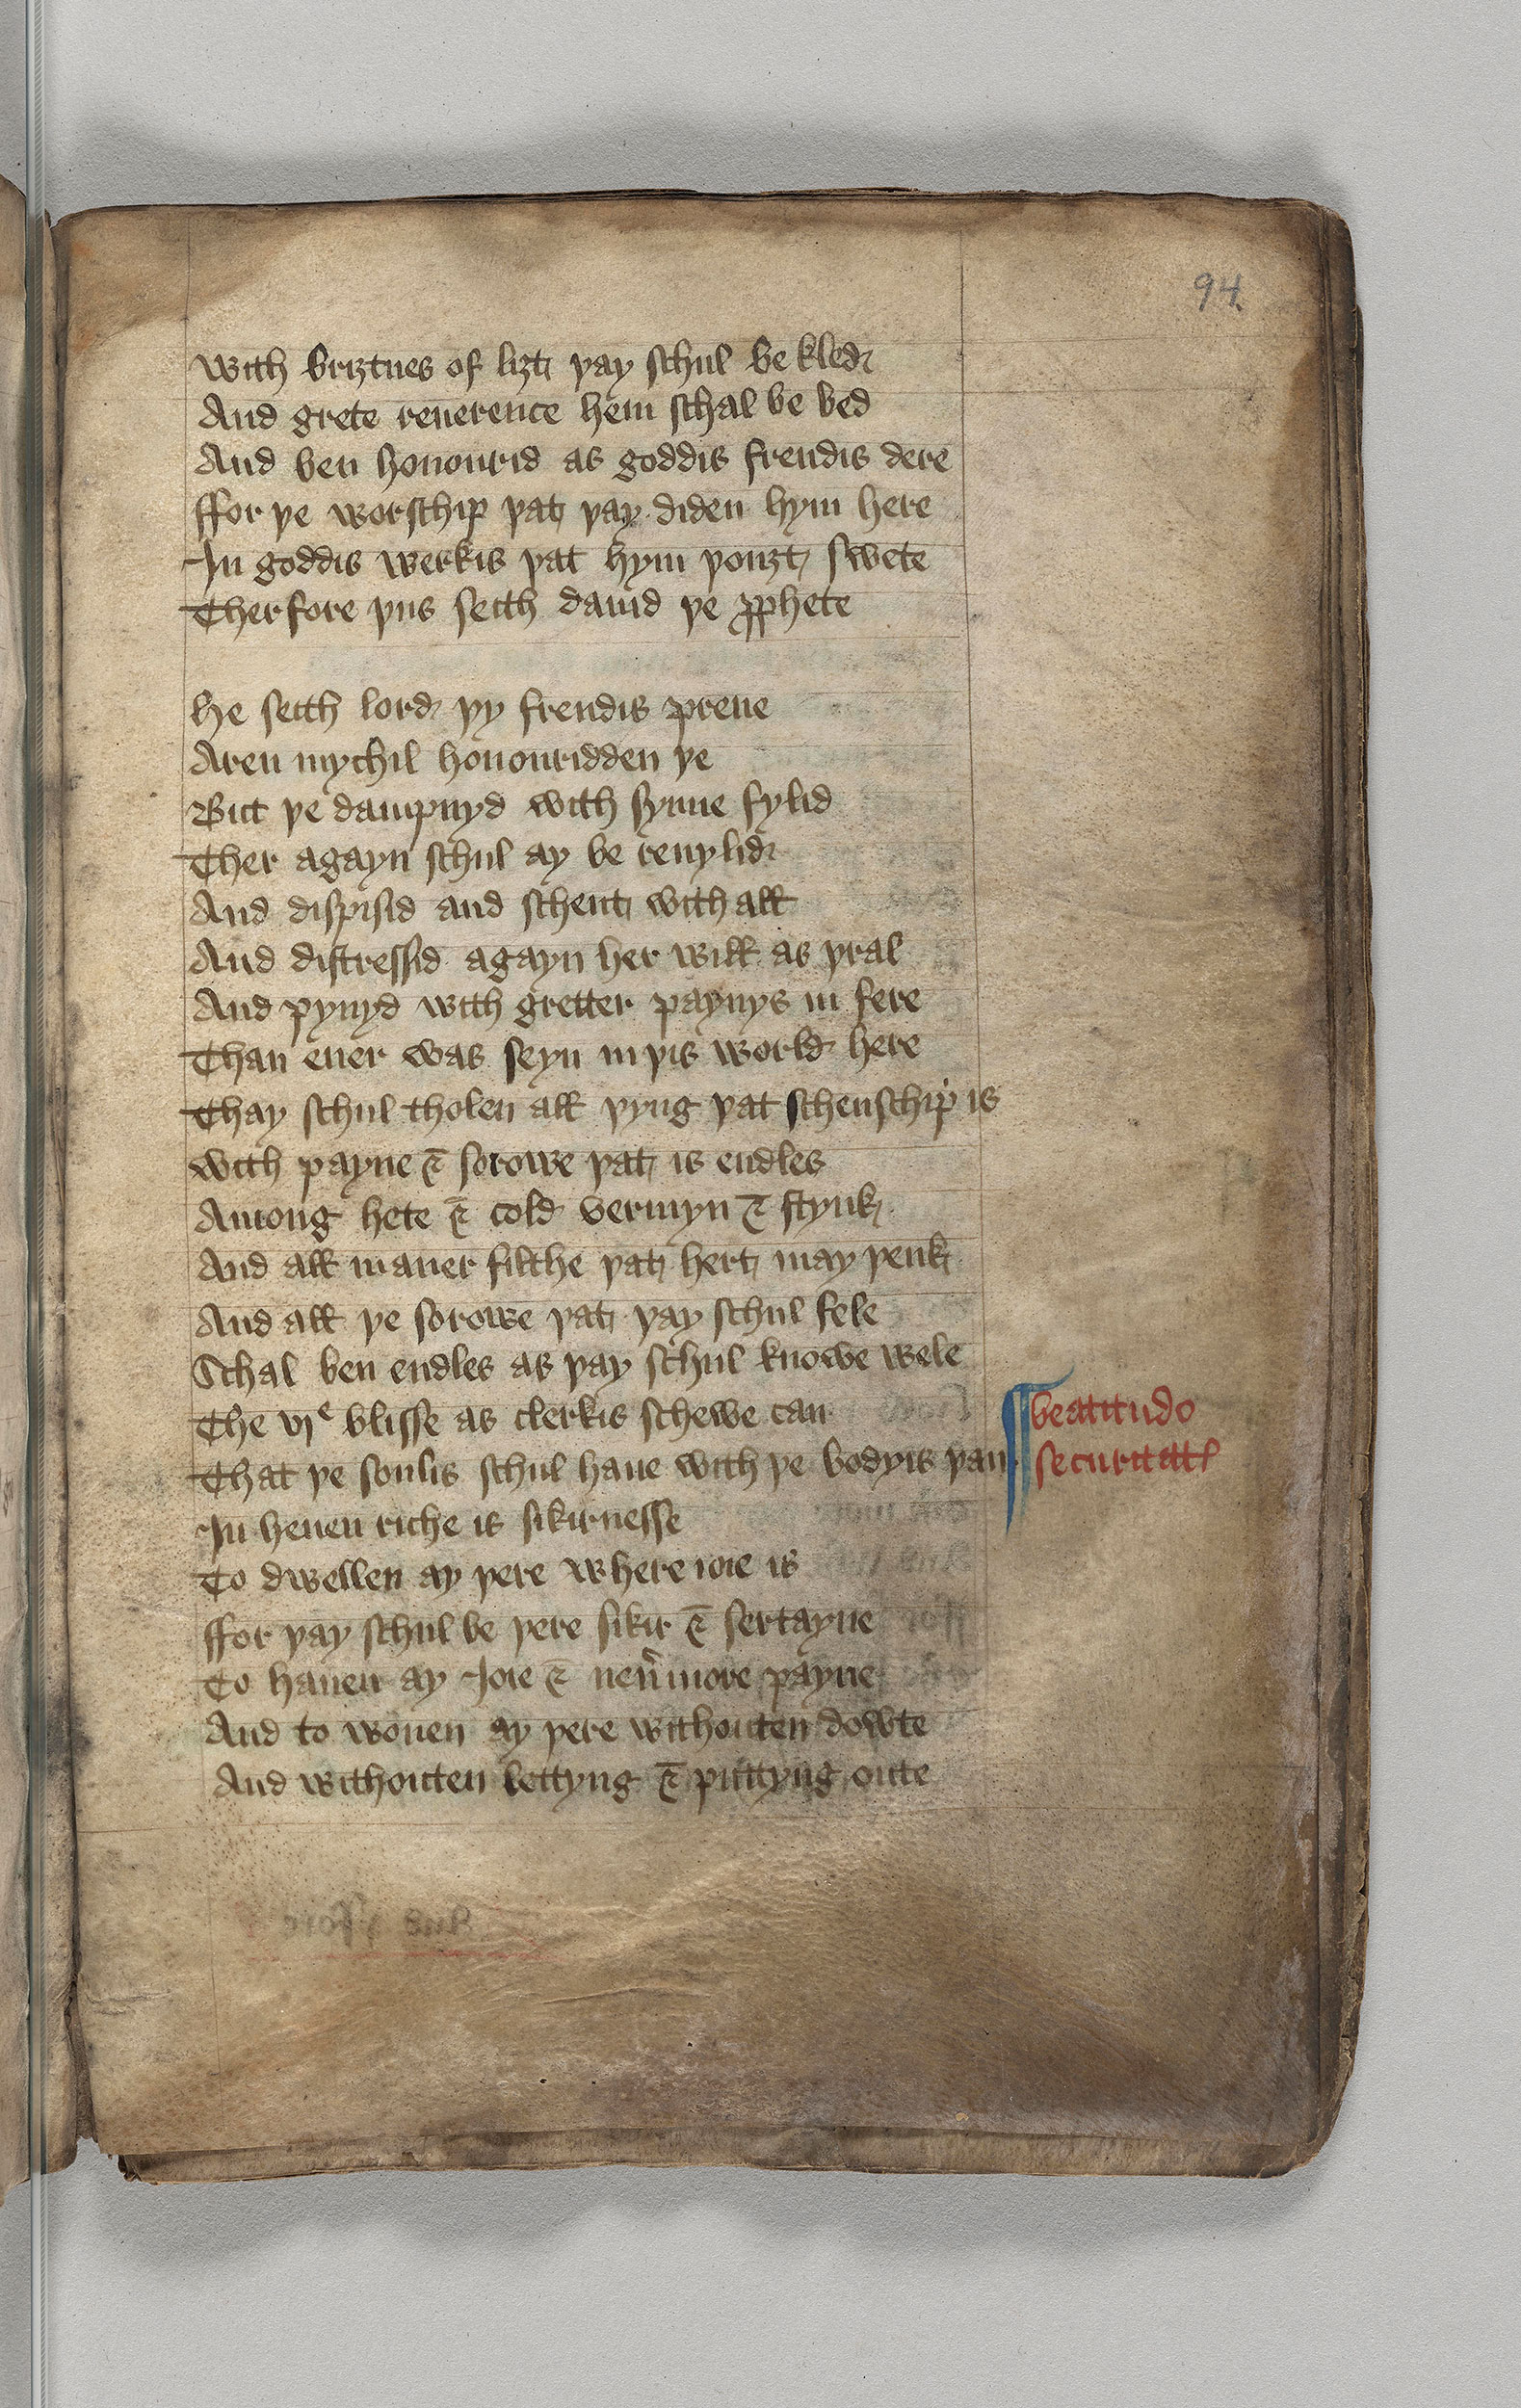 94.
With briȝtnes of liȝt þay schul be kled
And grete reuerence hem schal be bed
And ben honourid as goddis frendis dere
ffor þe worschip þat þay diden hym here
In goddis werkis þat hym þouȝt swete
Therfore þus seith dauid þe ꝓphete
He seith lord þy frendis preue
Aren mychil honouridden þe
But þe dampnyd with synne fylid
Ther agayn schul ay be reuylid
And dispisid and schent with all
And distressid agayn her will as þral
And pynyd with gretter paynys in fere
Than euer was seyn in þis world here
Thay schul tholen all þyng þat schenschip is
With payne & sorowe þat is endles
Among hete & cold vermyn & stynk
And all maner filthe þat hert may þenk
And all þe sorowe þat þay schul fele
Schal ben endles as þay schul knowe wele
The vjᵉ blisse as clerkis schewe can
That þe soulis schul haue with þe bodyis þan
¶ beatitudo
securitat
In heuen riche is sikirnesse
To dwellen ay þere where ioie is
ffor þay schul be þere sikir & sertayne
To hauen ay Ioie & neu̾more payne
And to wonen ay þere withouten dowte
And withouten lettyng & puttyng oute